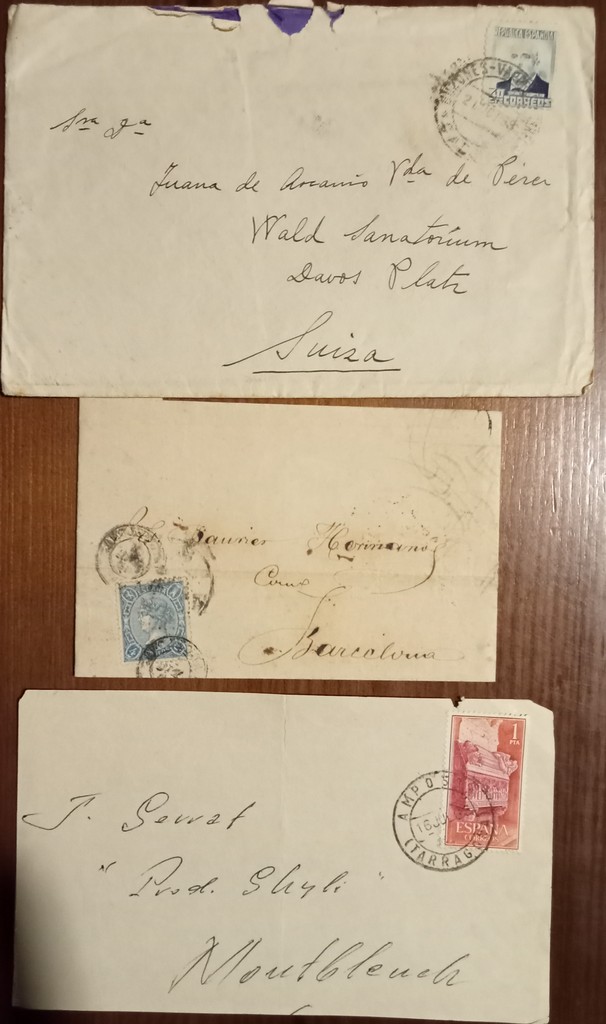 REPUBLICA ESPAÑOLA
CORREOS
Sra Da
Juana de Arcanio Vda de Pérez
Wald Sanatorium
Davos Platz
Suiza
Hermanos
Barcelona
1
PTA
ESPAÑA
CORREOS
AMPOS
16 JU
(TARRAG
J. Serrat
"Prod. Shyli"
Montblanch